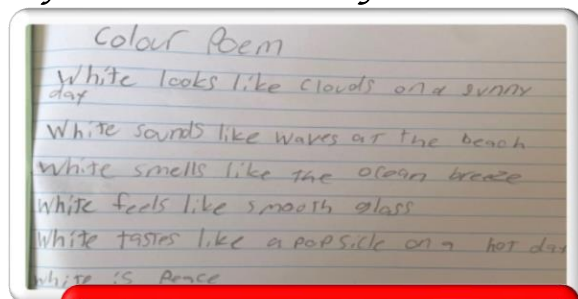 Colour Poem
White looks like clouds on a sunny
day
White sounds like waves at the beach
White smells like the ocean breeze
White feels like smooth glass
White tastes like a popsicle on a hot day
White is peace